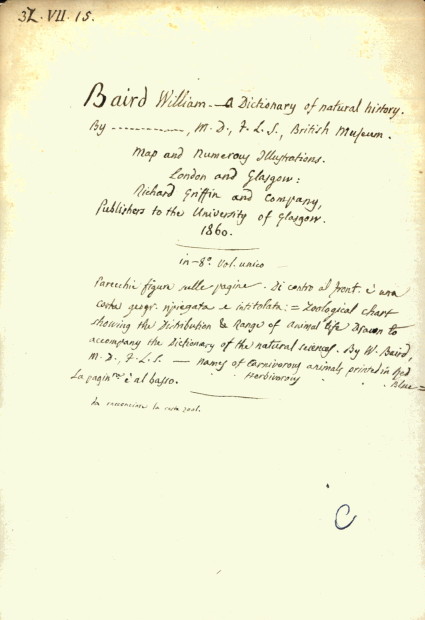 37. VII. 15.
Baird William. — A Dictionary of natural history.
By ------------, M. D., F. L. S., British Museum.
Map and Numerous Illustrations.
London and Glasgow:
Richard Griffin and Company,
Publishers to the University of Glasgow.
1860.
in-8º. Vol. unico
Parecchie figure nelle pagine. Di contro al front. è una
carta geogr. ripiegata e intitolata: = Zoological chart
showing the Distribution & Range of animal life Drawn to
accompany the Dictionary of the natural sciences. By W. Baird,
M. D., F. L. S. — Names of Carnivorous animals printed in Red
" Herbivorous " " Blue =
La pagin.ne è al basso.
la carta zool.
C